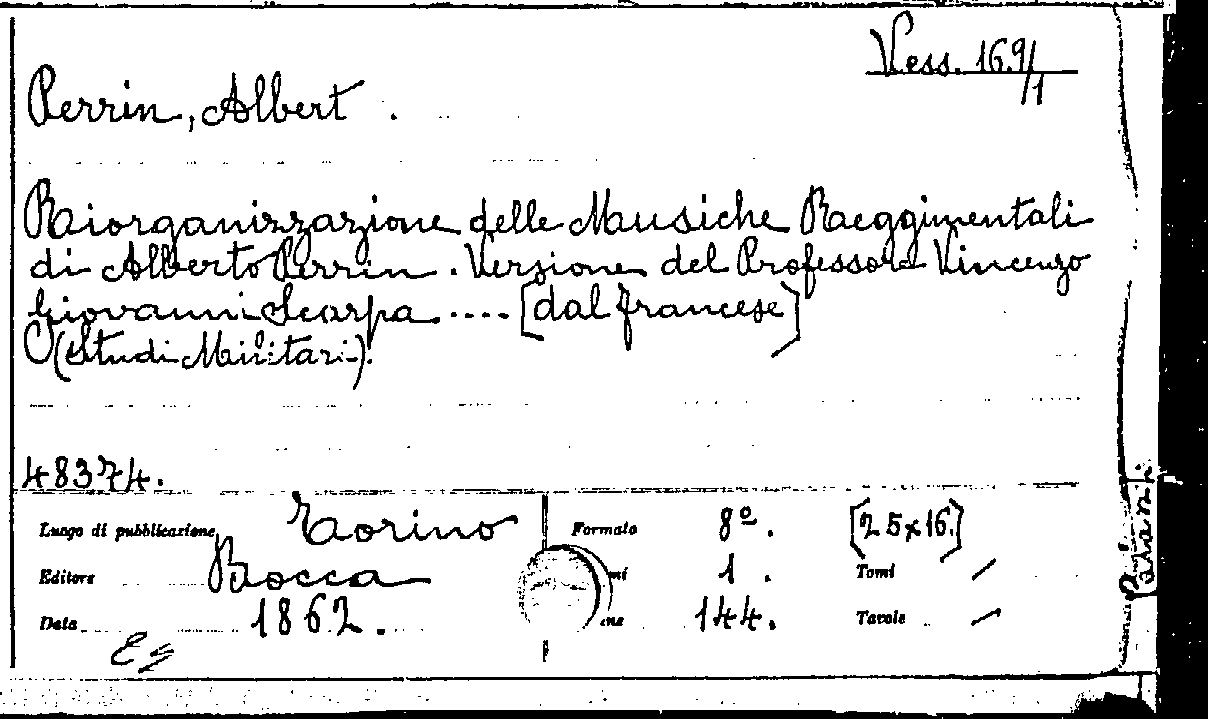 Vess. 169/1
Perrin, Albert.
Riorganizzazione delle Musiche Raeggimentali
di Alberto Perrin. Versione del Professore Vincenzo
Giovanni Scarpa .... [dal francese]
(Studi Militari).
48374.
Luogo di pubblicazione Torino Formato 8º. [25x16.]
Editore Rocca 1. Tomi /
Data 1862. 144. Tavole /